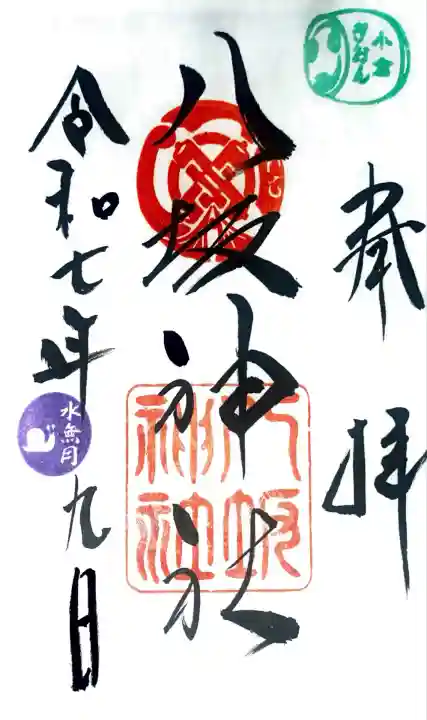 小倉
ぎおん
奉拝
八坂神社
八坂
神社
令和七年
水無月
九日